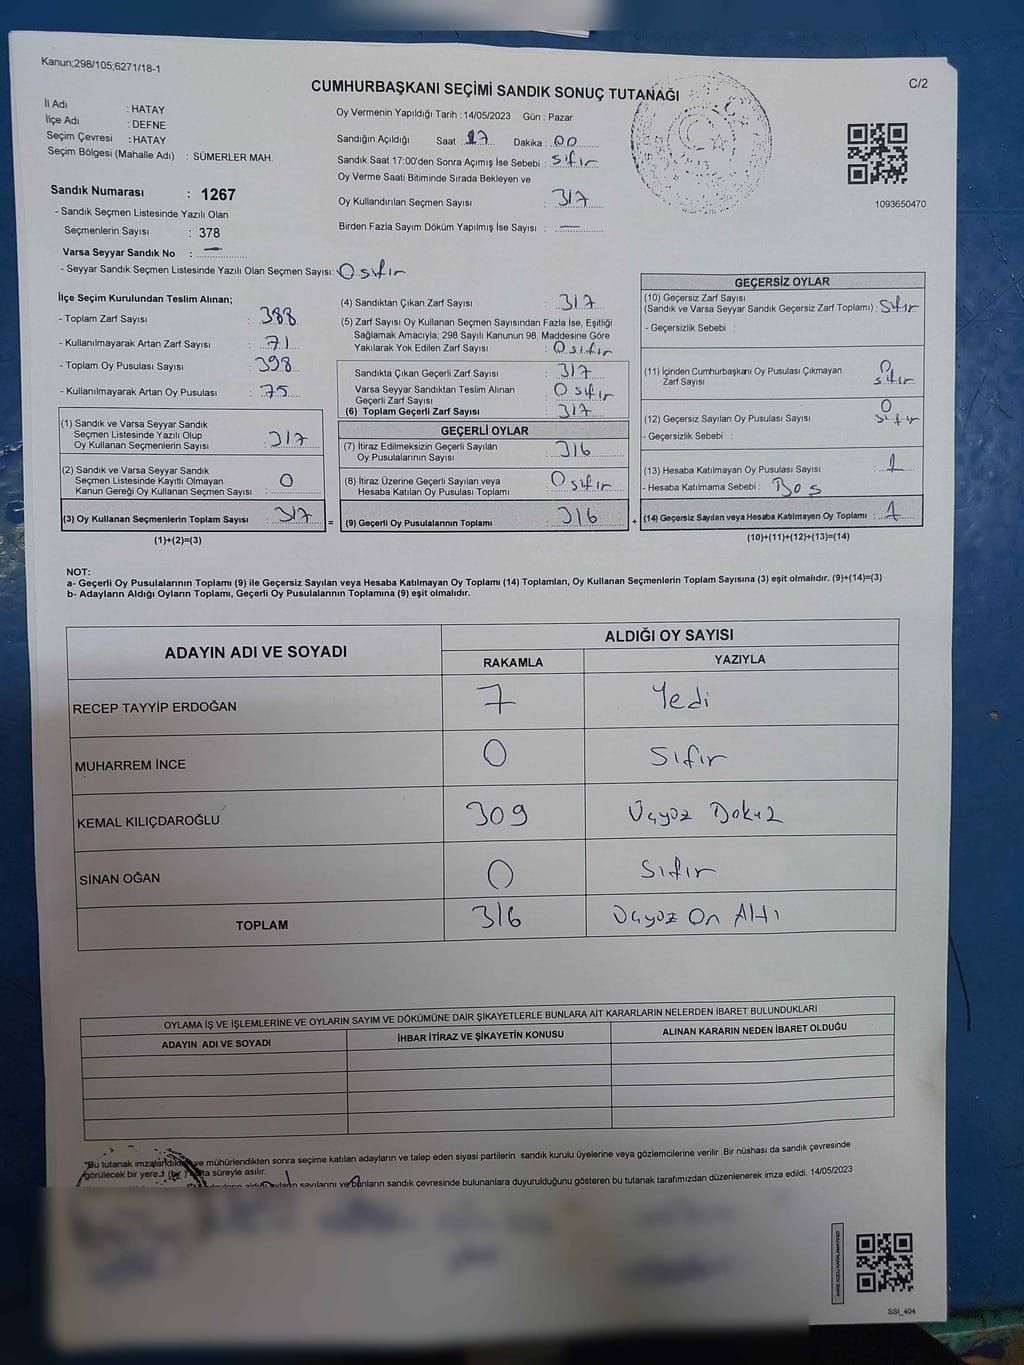 Kanun;298/105;6271/18-1
C/2
CUMHURBAŞKANI SEÇİMİ SANDIK SONUÇ TUTANAĞI
İl Adı : HATAY
İlçe Adı : DEFNE
Seçim Çevresi : HATAY
Seçim Bölgesi (Mahalle Adı) : SÜMERLER MAH.
Sandık Numarası : 1267
- Sandık Seçmen Listesinde Yazılı Olan
Seçmenlerin Sayısı : 378
Varsa Seyyar Sandık No : —
- Seyyar Sandık Seçmen Listesinde Yazılı Olan Seçmen Sayısı: 0 sıfır
Oy Vermenin Yapıldığı Tarih : 14/05/2023 Gün : Pazar
Sandığın Açıldığı Saat : 17 Dakika : 00
Sandık Saat 17:00'den Sonra Açımış İse Sebebi : sıfır
Oy Verme Saati Bitiminde Sırada Bekleyen ve
Oy Kullandırılan Seçmen Sayısı : 317
Birden Fazla Sayım Döküm Yapılmış İse Sayısı : —
1093650470
İlçe Seçim Kurulundan Teslim Alınan;
- Toplam Zarf Sayısı : 388
- Kullanılmayarak Artan Zarf Sayısı : 71
- Toplam Oy Pusulası Sayısı : 398
- Kullanılmayarak Artan Oy Pusulası : 75
(1) Sandık ve Varsa Seyyar Sandık
Seçmen Listesinde Yazılı Olup
Oy Kullanan Seçmenlerin Sayısı : 317
(2) Sandık ve Varsa Seyyar Sandık
Seçmen Listesinde Kayıtlı Olmayan
Kanun Gereği Oy Kullanan Seçmen Sayısı : 0
(3) Oy Kullanan Seçmenlerin Toplam Sayısı : 317
(1)+(2)=(3)
(4) Sandıktan Çıkan Zarf Sayısı : 317
(5) Zarf Sayısı Oy Kullanan Seçmen Sayısından Fazla İse, Eşitliği
Sağlamak Amacıyla; 298 Sayılı Kanunun 98. Maddesine Göre
Yakılarak Yok Edilen Zarf Sayısı : 0 sıfır
Sandıkta Çıkan Geçerli Zarf Sayısı : 317
Varsa Seyyar Sandıktan Teslim Alınan
Geçerli Zarf Sayısı : 0 sıfır
(6) Toplam Geçerli Zarf Sayısı : 317
GEÇERLİ OYLAR
(7) İtiraz Edilmeksizin Geçerli Sayılan
Oy Pusulalarının Sayısı : 316
(8) İtiraz Üzerine Geçerli Sayılan veya
Hesaba Katılan Oy Pusulası Toplamı : 0 sıfır
= (9) Geçerli Oy Pusulalarının Toplamı : 316 +
GEÇERSİZ OYLAR
(10) Geçersiz Zarf Sayısı
(Sandık ve Varsa Seyyar Sandık Geçersiz Zarf Toplamı) : Sıfır
- Geçersizlik Sebebi :
(11) İçinden Cumhurbaşkanı Oy Pusulası Çıkmayan
Zarf Sayısı : 0 sıfır
(12) Geçersiz Sayılan Oy Pusulası Sayısı : 0 sıfır
- Geçersizlik Sebebi :
(13) Hesaba Katılmayan Oy Pusulası Sayısı : 1
- Hesaba Katılmama Sebebi : Boş
(14) Geçersiz Sayılan veya Hesaba Katılmayan Oy Toplamı : 1
(10)+(11)+(12)+(13)=(14)
NOT:
a- Geçerli Oy Pusulalarının Toplamı (9) ile Geçersiz Sayılan veya Hesaba Katılmayan Oy Toplamı (14) Toplamları, Oy Kullanan Seçmenlerin Toplam Sayısına (3) eşit olmalıdır. (9)+(14)=(3)
b- Adayların Aldığı Oyların Toplamı, Geçerli Oy Pusulalarının Toplamına (9) eşit olmalıdır.
ADAYIN ADI VE SOYADI
ALDIĞI OY SAYISI
RAKAMLA YAZIYLA
RECEP TAYYİP ERDOĞAN 7 Yedi
MUHARREM İNCE 0 Sıfır
KEMAL KILIÇDAROĞLU 309 Üçyüz Dokuz
SİNAN OĞAN 0 Sıfır
TOPLAM 316 Üçyüz On Altı
OYLAMA İŞ VE İŞLEMLERİNE VE OYLARIN SAYIM VE DÖKÜMÜNE DAİR ŞİKAYETLERLE BUNLARA AİT KARARLARIN NELERDEN İBARET BULUNDUKLARI
ADAYIN ADI VE SOYADI İHBAR İTİRAZ VE ŞİKAYETİN KONUSU ALINAN KARARIN NEDEN İBARET OLDUĞU
*Bu tutanak imzalandık ve mühürlendikten sonra seçime katılan adayların ve talep eden siyasi partilerin sandık kurulu üyelerine veya gözlemcilerine verilir .Bir nüshası da sandık çevresinde
görülecek bir yere 1 (bir) süreyle asılır.
sayılarını ve bunların sandık çevresinde bulunanlara duyurulduğunu gösteren bu tutanak tarafımızdan düzenlenerek imza edildi. 14/05/2023
SSI_404